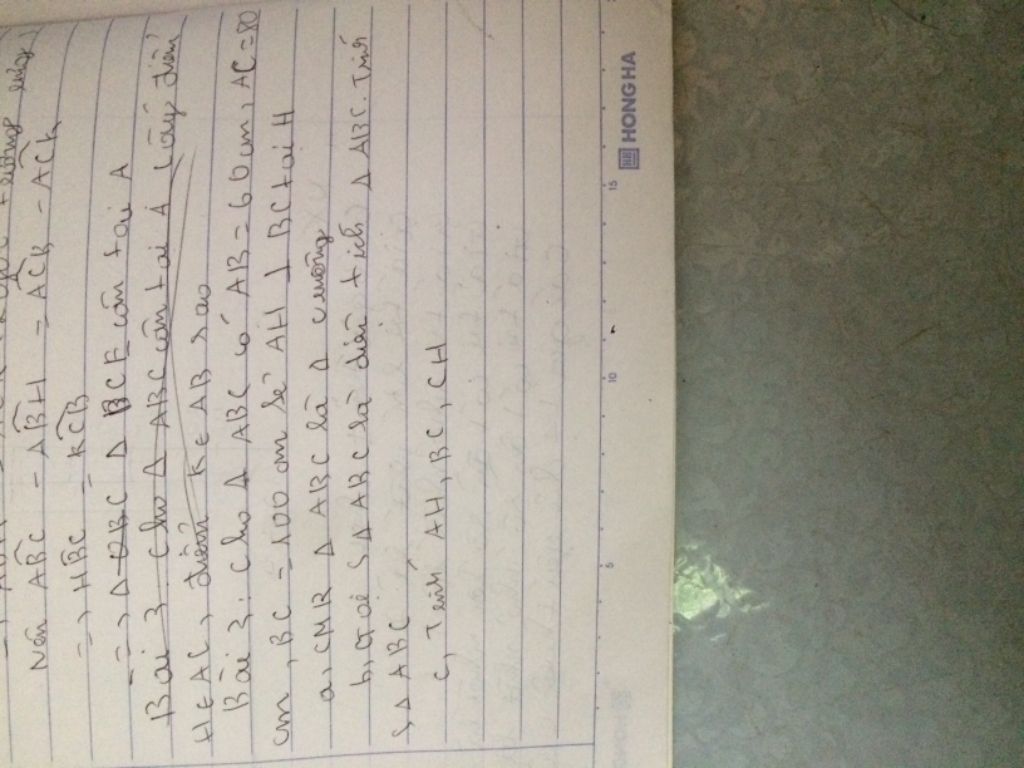 Nên ABC - ABH = ACB - ACK
=> HBC = KCB
=> Δ BCE cân tại A
Bài 3: Cho Δ ABC cân tại A lấy điểm
H ∈ AC, điểm K ∈ AB sao
Bài 3: Cho Δ ABC có AB = 60 cm, AC = 80
cm, BC = 100 cm kẻ AH ⊥ BC tại H
a, CMR Δ ABC là Δ vuông
b, Gọi S Δ ABC là diện tích Δ ABC. Tính
S Δ ABC
c, Tính AH, BC, CH
HONG HA
5 10 15